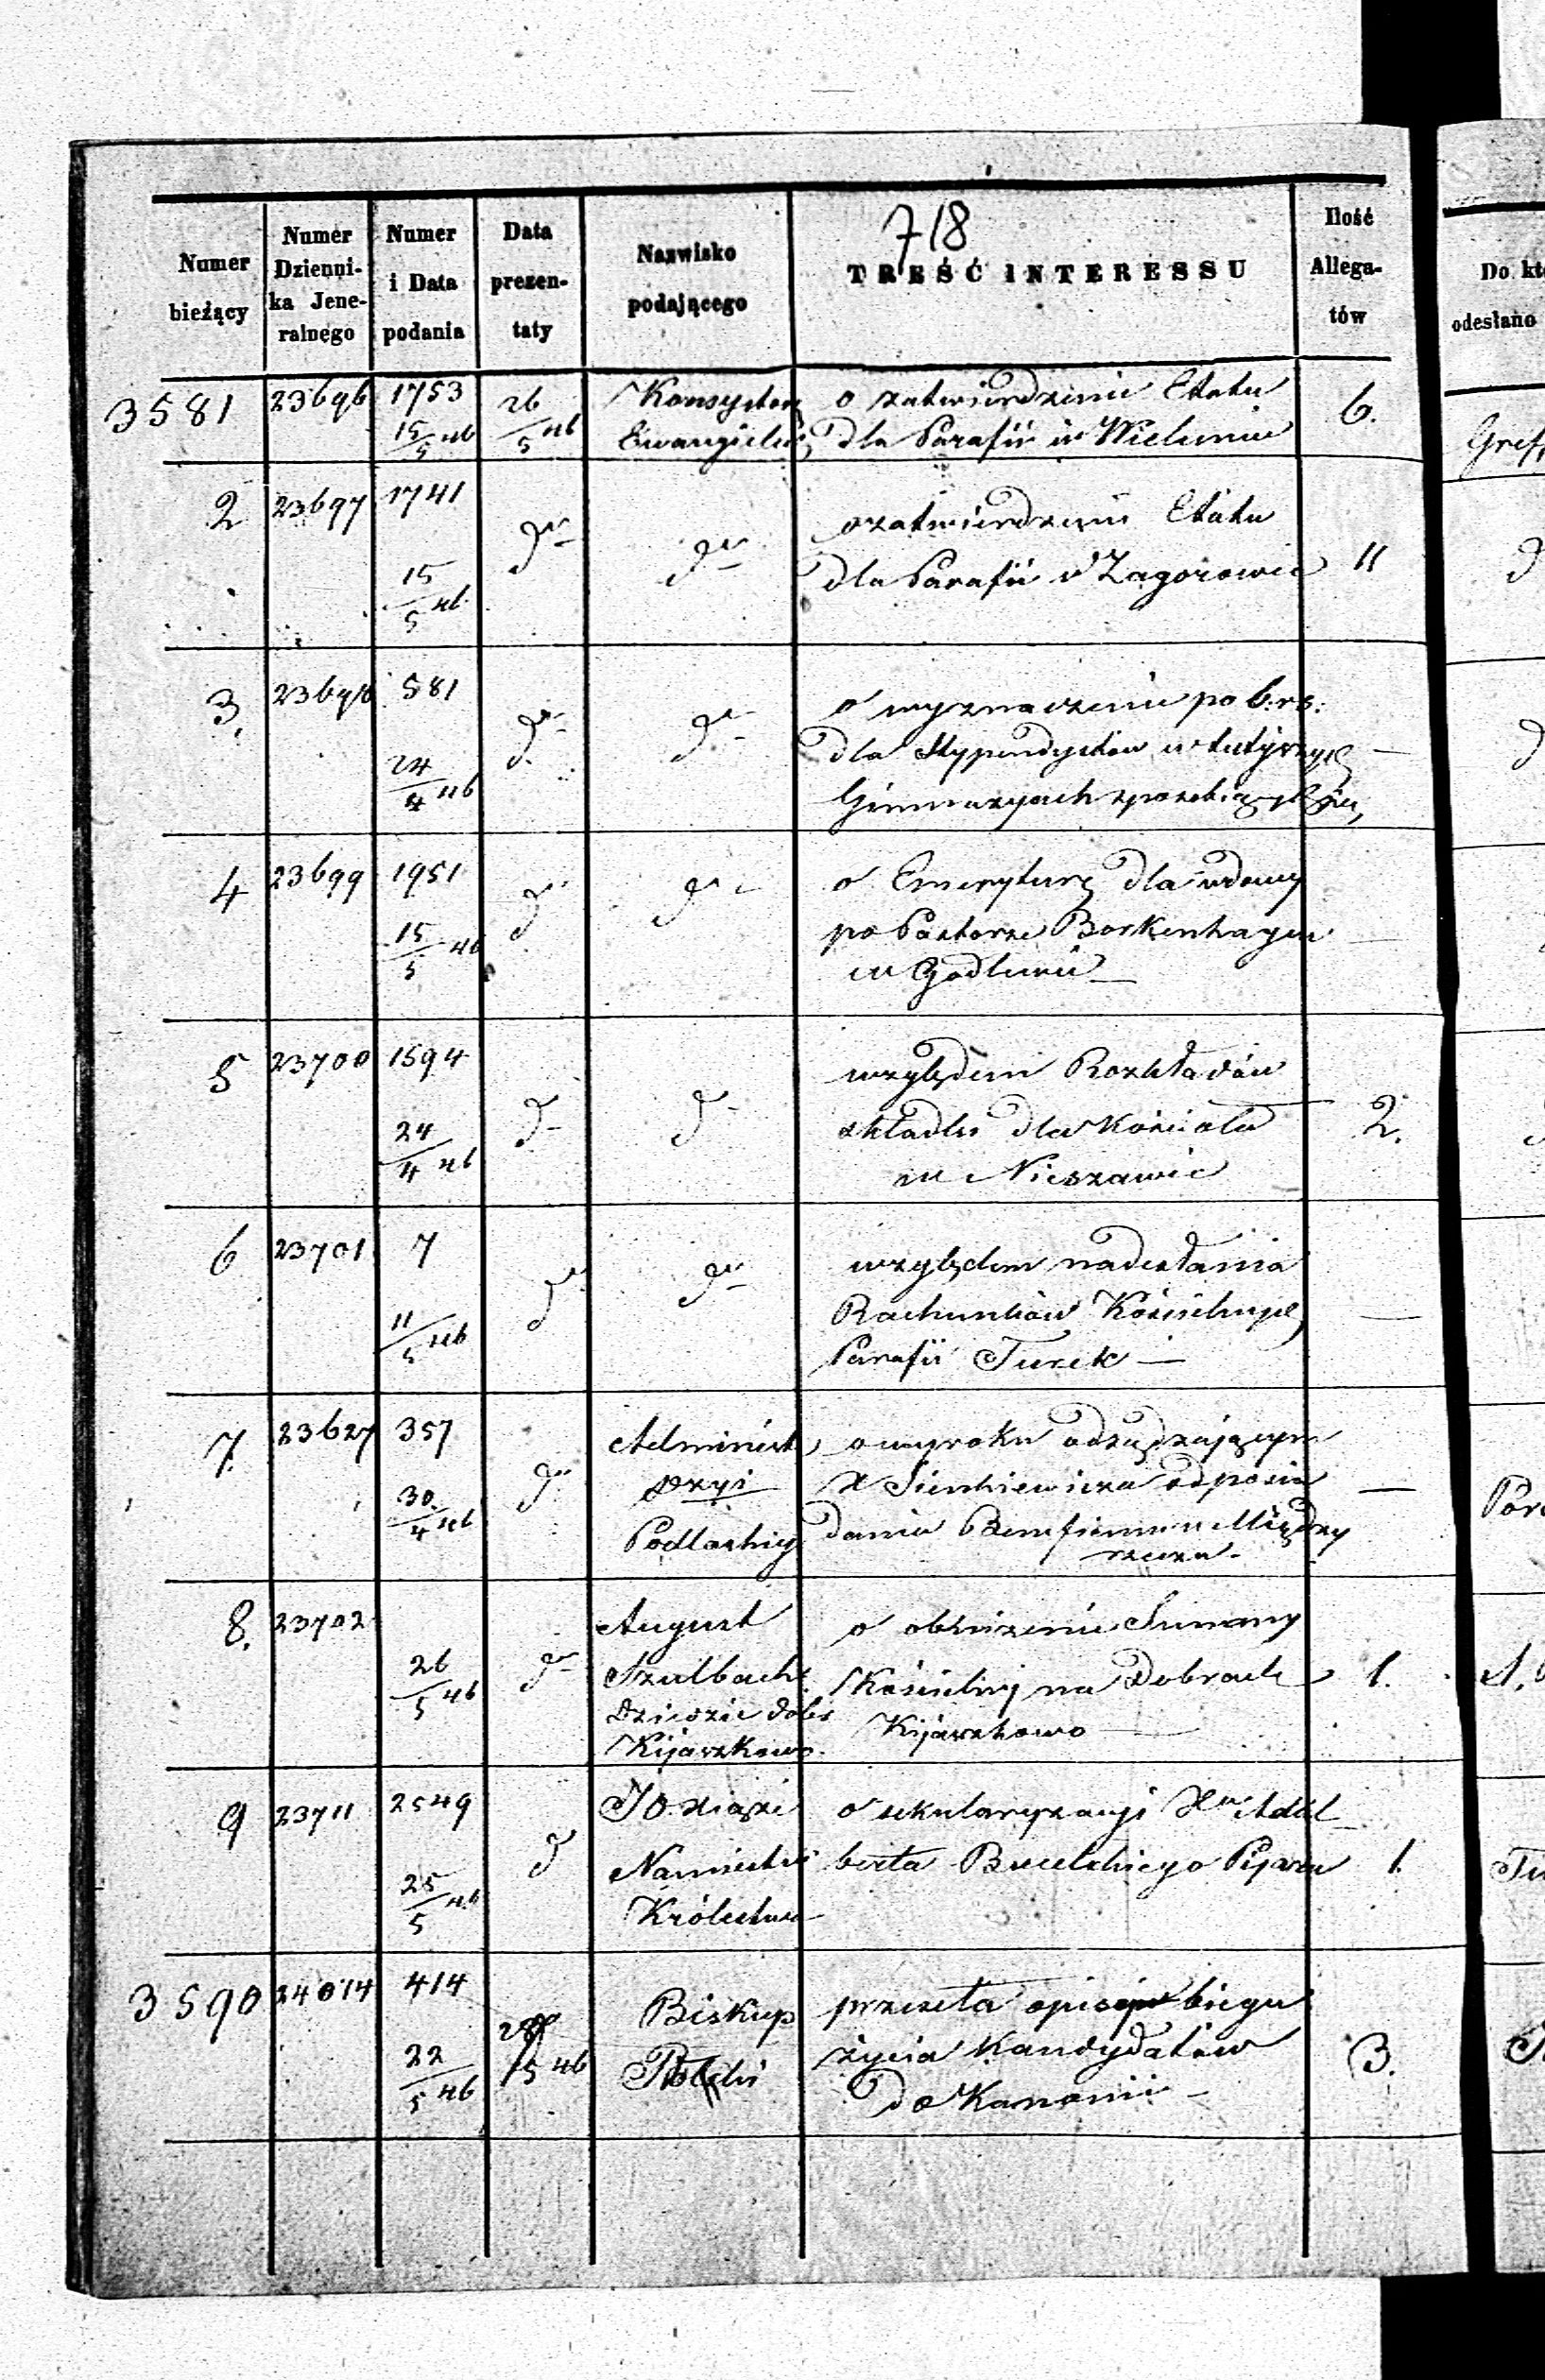 718
Numer bieżący
Numer Dzienni-ka Jene-ralnego
Numer i Data podania
Data prezen-taty
Nazwisko podającego
TREŚĆ INTERESSU
Ilość Allega-tów
Do kt
odesłano
3581 23696 1753 15/5 46 26/5 46 Konsystorz o zatwierdzenie Etatu 6.
Ewangielic dla Parafii w Wieluniu
2 23697 1741 15/5 46 do do o zatwierdzenie Etatu
dla Parafii w Zagorowie 11
3. 23698 581 24/4 46 do do o wyznaczenie po 6. rs:
dla Stypendystów w tutejszych —
Gimnazyach
4 23699 1951 15/5 46 do do o Emeryturę dla wdowy
po Pastorze Borkenhagen —
w
5 23700 1594 24/4 46 do do względem Rozkładów
składki dla Kościoła 2.
w Nieszawie
6 23701 7 11/5 46 do do względem nadesłania
Rachunków Kościelnych —
Parafii Turek —
7. 23627 357 30/4 46 do Administ o wyroku odsądzającym
racyi X Sienkiewicza od posia —
Podlaskiej dania Beneficium w Między
rzecza.
8. 23702 26/5 46 do August o obniżenie Summy
Szulbach Kościelnej na Dobrach 1.
Dziedzic dóbr Kijaszkowo —
Kijaszkowo.
9 23711 2549 25/5 46 do JO. Xiąże o sekularyzacyi Xa Adal
Namiestnik berta Pijara 1.
Królestwa
3590 24014 414 22/5 46 28/5 46 Biskup przesyła opisy biegu
życia Kandydatów 3.
do Kanonii —